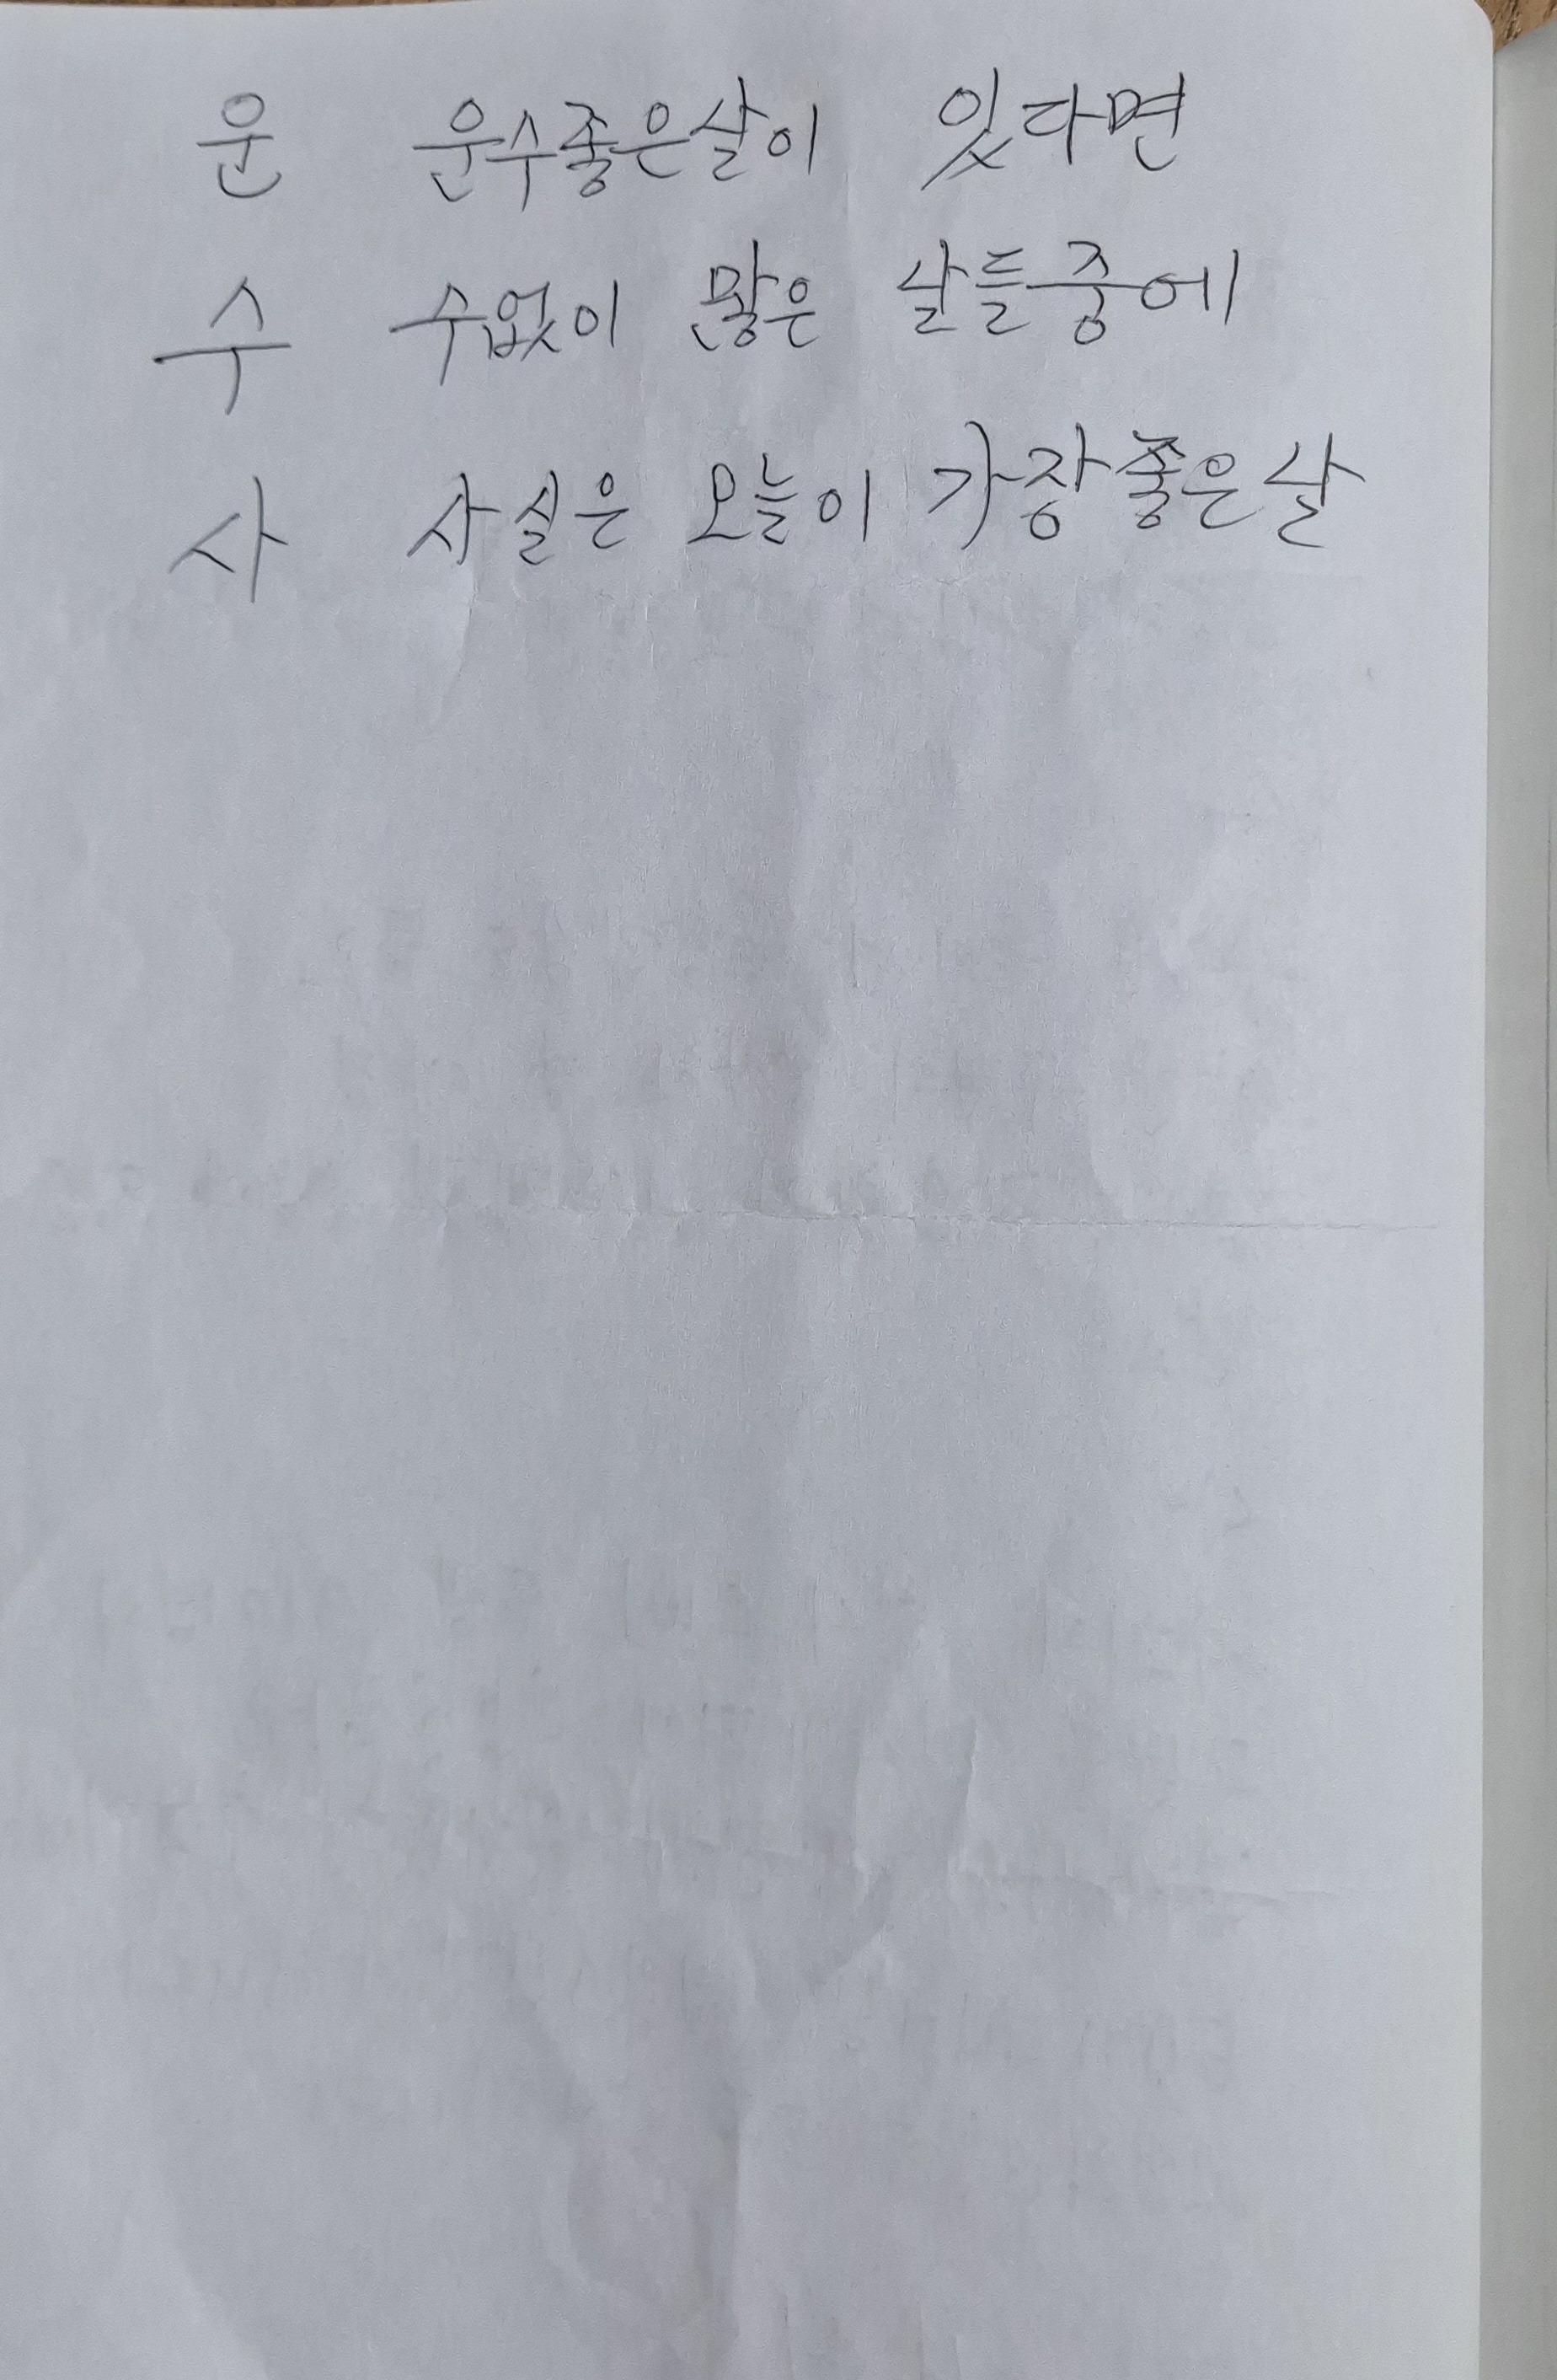 운 운수좋은날이 있다면
수 수없이 많은 날들중에
사 사실은 오늘이 가장좋은날